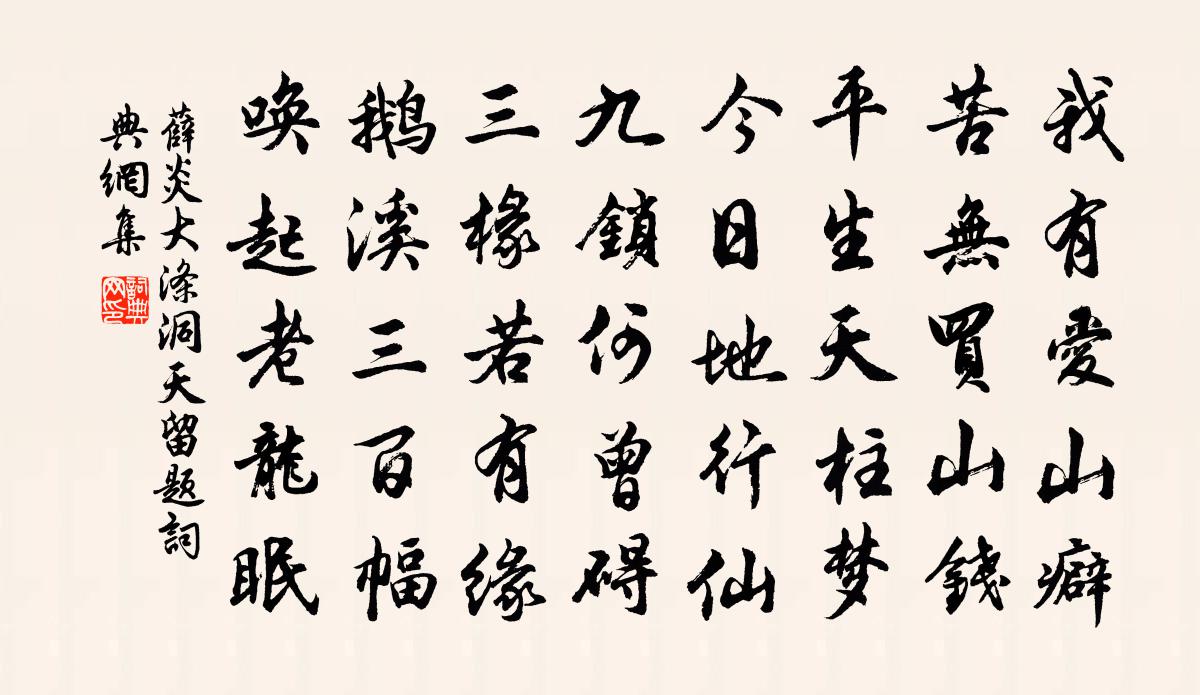 我有愛山癖
苦無買山錢
平生天柱梦
今日地行仙
九鎖何曾碍
三椽若有缘
鵝溪三百幅
唤起老龍眠
薛炎大涤洞天留题詞
典網集
詞典
网印